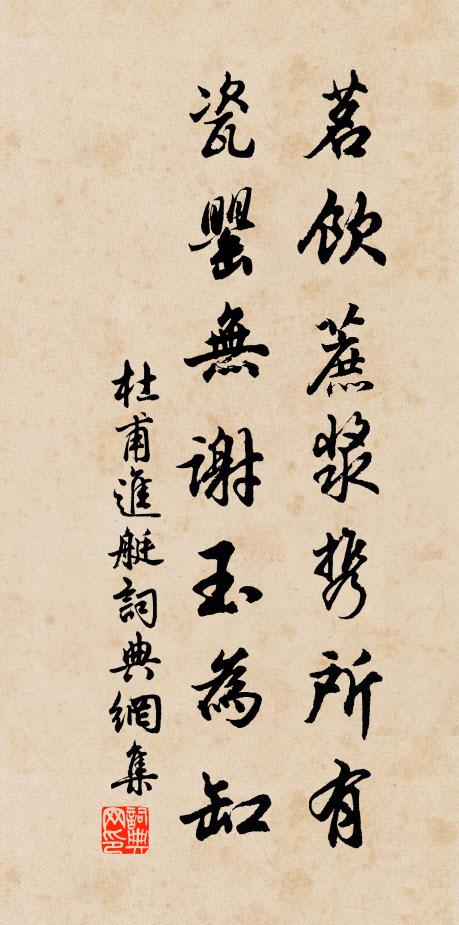 茗飲蔗漿携所有
瓷罌無謝玉為缸
杜甫進艇詞典網集
詞典網印